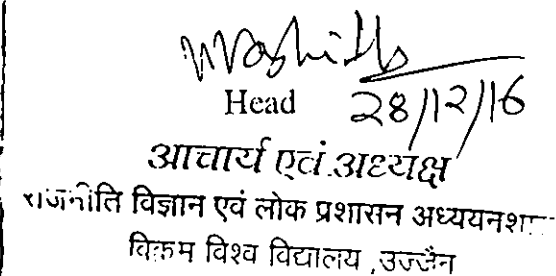 Head 28/12/16
आचार्य एवं अध्यक्ष
राजनीति विज्ञान एवं लोक प्रशासन
विक्रम विश्व विद्यालय, उज्जैन